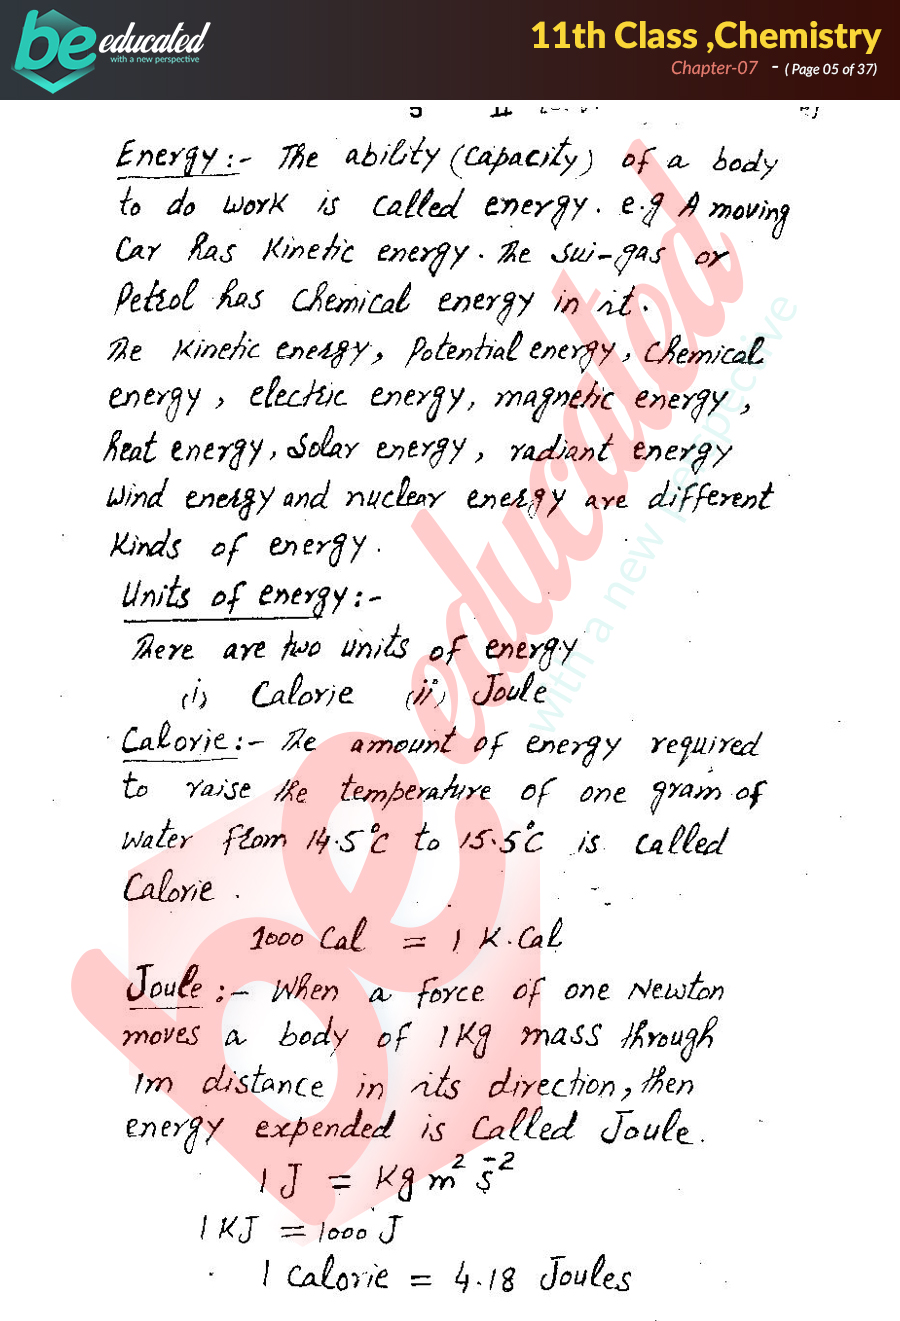 be educated
with a new perspective
11th Class ,Chemistry
Chapter-07 - ( Page 05 of 37)
Energy :- The ability (capacity) of a body
to do work is called energy. e.g A moving
Car has Kinetic energy. The sui-gas or
Petrol has chemical energy in it.
The Kinetic energy, Potential energy, chemical
energy, electric energy, magnetic energy,
heat energy, Solar energy, radiant energy
wind energy and nuclear energy are different
Kinds of energy.
Units of energy :-
There are two units of energy
(i) Calorie (ii) Joule
Calorie :- The amount of energy required
to raise the temperature of one gram of
water from 14.5°C to 15.5°C is called
Calorie.
1000 Cal = 1 K.Cal
Joule :- When a force of one Newton
moves a body of 1Kg mass through
1m distance in its direction, then
energy expended is called Joule.
1 J = Kg m² s⁻²
1 KJ = 1000 J
1 Calorie = 4.18 Joules
be educated
with a new perspective